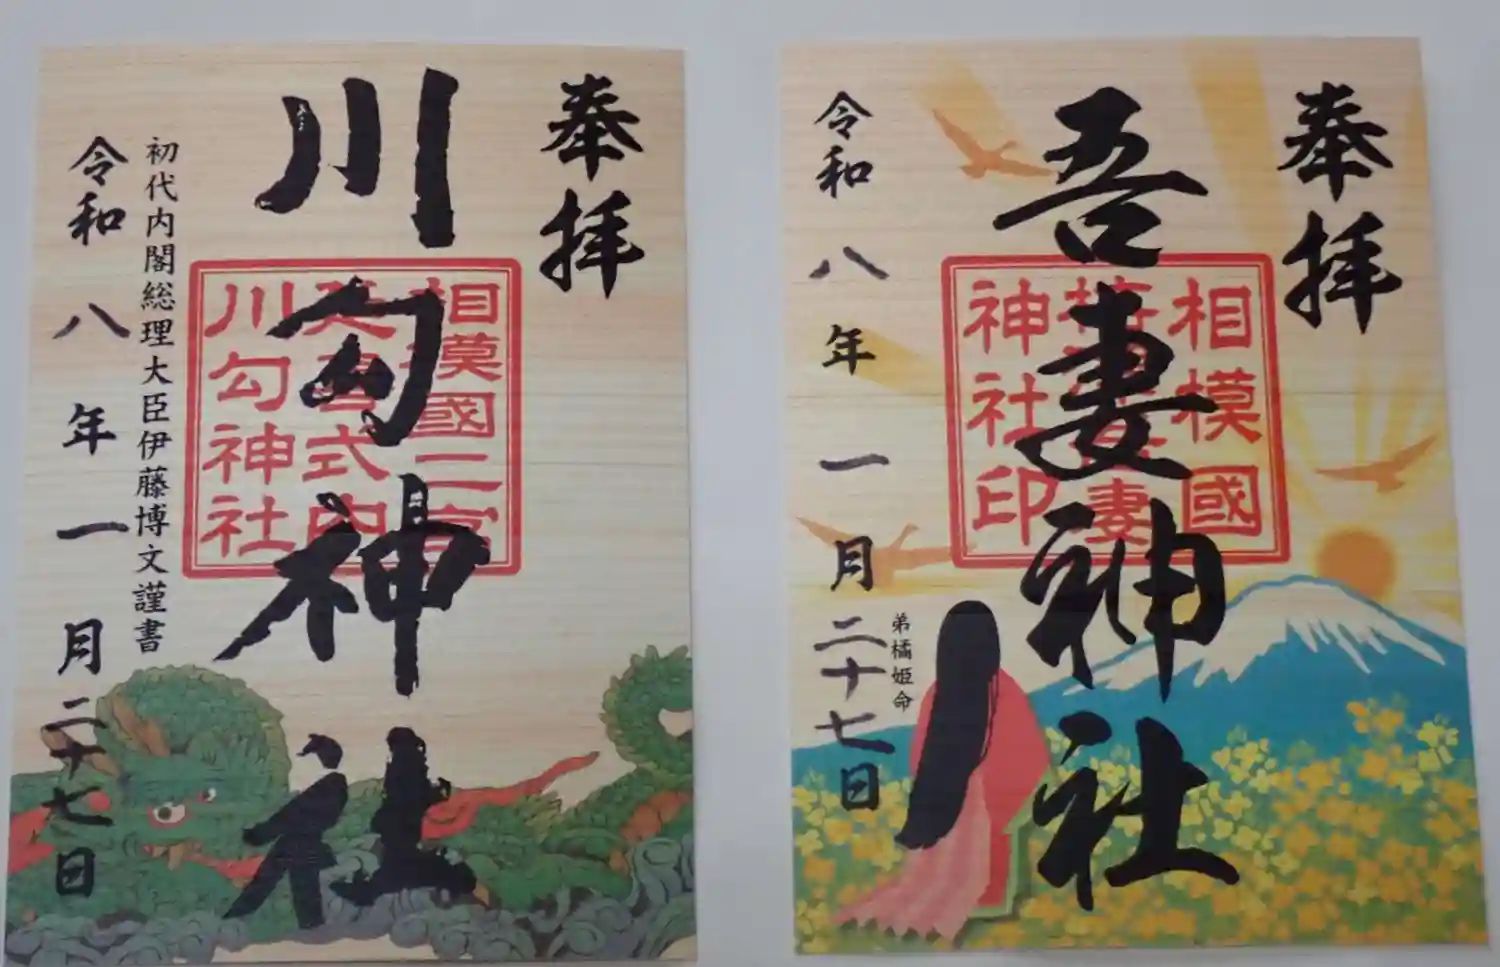 奉拝
川勾神社
相模國二宮
延喜式内
川勾神社
初代内閣総理大臣伊藤博文謹書
令和八年一月二十七日
奉拝
吾妻神社
相模國
妻
神社印
弟橘姫命
令和八年一月二十七日